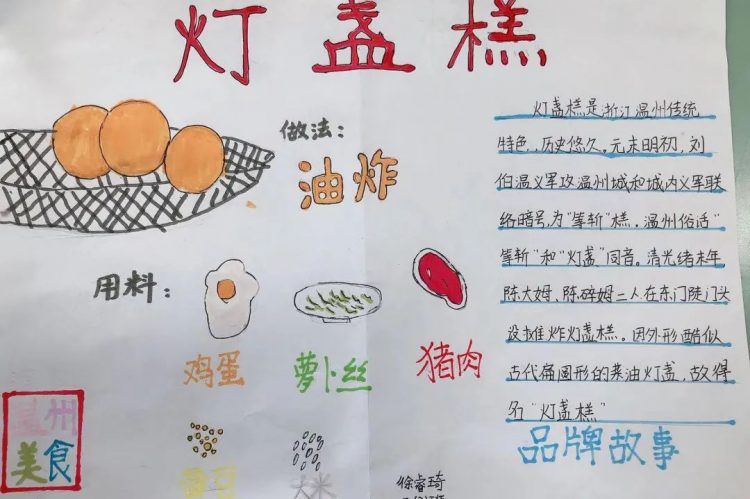 灯盏糕
做法：
油炸
用料：
鸡蛋
萝卜丝
猪肉
黄豆
大米
温州
美食
灯盏糕是浙江温州传统
特色，历史悠久，元末明初，刘
伯温义军攻温州城和城内义军联
络暗号，为“等斩”糕。温州俗话“
等斩”和“灯盏”同音。清光绪末年
陈大姆、陈碎姆二人在东门陡门头
设摊炸灯盏糕。因外形酷似
古代扁圆形的菜油灯盏，故得
名“灯盏糕”
品牌故事
徐睿琦